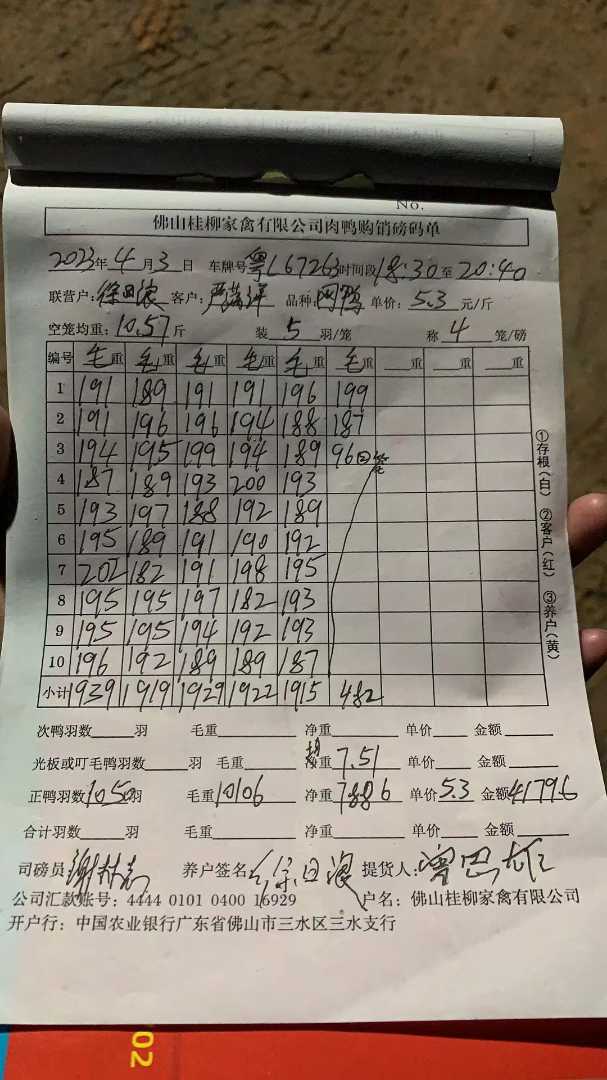 No.
佛山桂柳家禽有限公司肉鸭购销磅码单
2023年4月3日 车牌号粤L67263时间段18:30至20:40
联营户:徐日浪 客户: 品种:网鸭 单价:5.3元/斤
空笼均重:10.57斤 装5羽/笼 称4笼/磅
编号 毛重 毛重 毛重 毛重 毛重 毛重 重 重 重
1 191 189 191 191 196 199
2 191 196 196 194 188 187
3 194 195 199 194 189 96
4 187 189 193 200 193
5 193 197 188 192 189
6 195 189 191 190 192
7 202 182 191 198 195
8 195 195 197 182 193
9 195 195 194 192 193
10 196 192 189 189 187
小计 1939 1919 1929 1922 1915 482
①存根(白) ②客户(红) ③养户(黄)
次鸭羽数 羽 毛重 净重 单价 金额
光板或叮毛鸭羽数 羽 毛重 均重7.51 单价 金额
正鸭羽数1050羽 毛重10106 净重7886 单价5.3 金额41796
合计羽数 羽 毛重 净重 单价 金额
司磅员: 养户签名:徐日浪 提货人:
公司汇款账号:4444 0101 0400 16929 户名:佛山桂柳家禽有限公司
开户行:中国农业银行广东省佛山市三水区三水支行
02